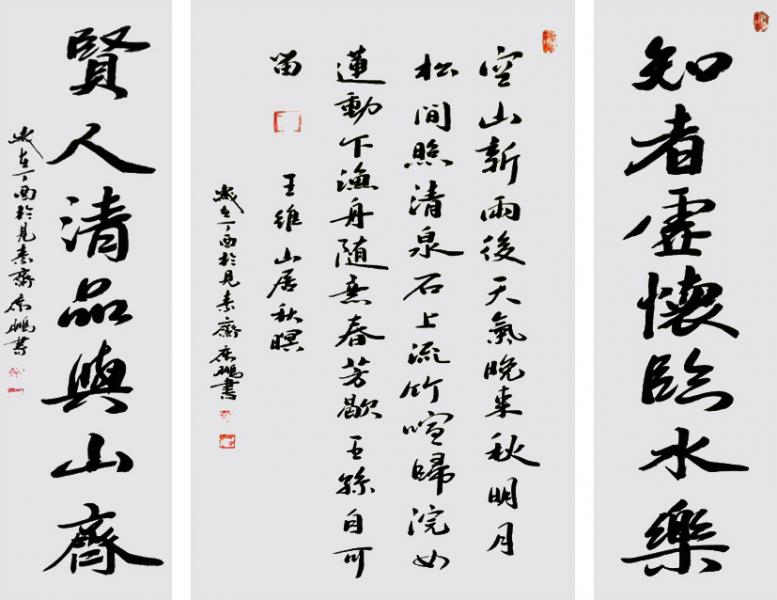 知者虛懷臨水樂
空山新雨後天氣晚來秋明月
松間照清泉石上流竹喧歸浣女
蓮動下漁舟隨意春芳歇王孫自可
留
王維山居秋暝
歲在丁酉於見素齋鵬書
賢人清品與山齊
歲在丁酉於見素齋鵬書